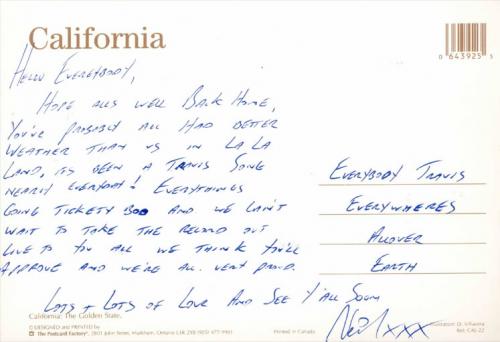 California
0 64392 5 5
Hello Everybody,
Hope alls well Back Home,
You've probably all Had better
weather than us in LA LA
Land, its been a Travis Song
nearly everyday! Everythings
going tickety Boo and we can't
wait to take the record out
live to you all we think you'll
approve and we're all very proud.
Lots + Lots of Love And See Y'all Soon
Neil xxx
Everybody Travis
Everywheres
Allover
Earth
California: The Golden State.
© DESIGNED and PRINTED by
The Postcard Factory 2801 John Street, Markham, Ontario L3R 2Y8 (905) 477-9901
Printed in Canada
Illustration: D. Villavera
Ref: CAL-22